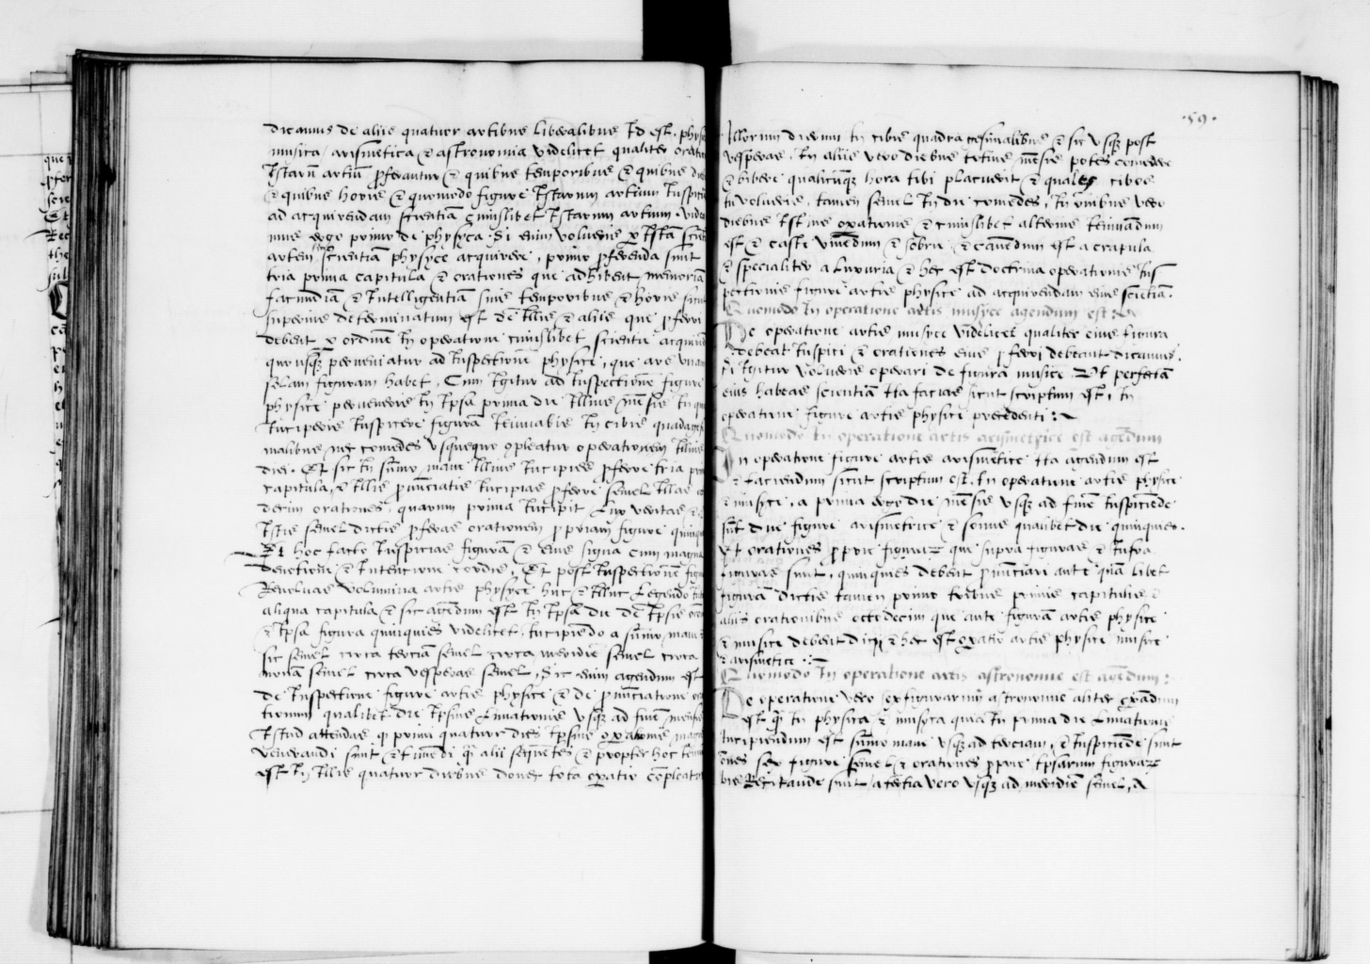 dicamus de aliis quatuor artibus liberalibus Id est, phys
musica, arismetica & astronomia videlicet qualiter orati
Istarum artium proferantur & quibus temporibus & quibus die
& quibus horis & quomodo figure Istarum artium Inspici
ad acquirendam scientiam cuiuslibet Istarum artium. vide
mus ergo primo de physica. Si enim volueris per Istam
artem scientiam physice acquirere, primo proferenda sunt
tria prima capitula & orationes que adhibent memoriam
facundiam & Intelligentiam suis temporibus & horis sicut
superius determinatum est de Illis & aliis que proferri
debent per ordinem In operatione cuiuslibet scientie acquirende
quousque perveniatur ad Inspectionem physice, que ars unam
solam figuram habet. Cum Igitur ad Inspectionem figure
physice perveneris In Ipsa prima die Illius mensis In qu
Incipies Inspicere figuram Ieiunabis In cibis quadrages
malibus nec comedes usqueque compleatur operationem Illius
diei. Et sic In summo mane Illius Incipies proferre tria pri
capitula, & Illis pronunciatis Incipias proferre semel Illas
decim orationes, quarum prima Incipit Lux veritas &
Istis semel dictis proferas orationem propriam figure quinqu
Et hoc facto Inspicias figuram & eius signa cum magna
devotione & Intencione cordis. Et post Inspectionem figu
Revolvas volumina artis physice huc & Illuc Legendo
aliqua capitula & sic agendum est In Ipsa die de Ipsis
& Ipsa figura quinquies videlicet, Incipiendo a summo mane
sic semel circa terciam semel circa meridiem semel circa
nonam semel circa vesperas semel, Sic enim agendum est
de Inspectione figure artis physice & de pronunciatione or
tionum qualibet die Ipsius Lunationis usque ad finem mensis
Istud attendas quod primi quatuor dies Ipsius operationis magis
venerandi sunt & timendi quam alii sequentes & propter hoc
est In Illis quatuor diebus donec tota operatio compleatur
59.
Illorum dierum In cibis quadragesimalibus & sic usque post
vesperas. In aliis vero diebus totius mensis potes comedere
& bibere qualicumque hora tibi placuerit & quales cibos
tu volueris, tamen semel In die comedes, In omnibus vero
diebus Istius operationis & cuiuslibet alterius Ieiunandum
est & caste vivendum & sobrie, & cavendum est a crapula
& specialiter a Luxuria & hec est doctrina operationis Ins
pectionis figure artis physice ad acquirendam eius scientiam.
Quomodo In operatione artis musyce agendum est
De operatione artis musyce videlicet qualiter eius figura
debeat Inspici & orationes eius proferri debeant dicamus.
Si Igitur volueris operari de figura musice Ut perfectam
eius habeas scientiam Ita facias sicut scriptum est, In
operatione figure artis physice precedenti :
Quomodo In operatione artis arismetrice est agendum
In operatione figure artis arismetice Ita agendum est
& faciendum sicut scriptum est. In operatione artis physice
& musyce, a prima ergo die mensis usque ad finem Inspiciende
sunt due figure arismetrice & semis qualibet die quinquies.
Et orationes proprie figurarum que supra figuras & Infra
figuras sunt, quinquies debent pronunciari ante quam libet
figuram dictis tamen primo tribus primis capitulis &
aliis orationibus octodecim que ante figuram artis physice
& musice debent dici & hec est operatio artis physice musice
& arismetice :
Quomodo In operatione artis astronomie est agendum :
De operatione vero sex figurarum astronomie aliter operandum
est quam In physica & musyca quia In prima die Lunationis
Incipiendum est summo mane usque ad terciam, & Inspiciende sunt
omnes sex figure semel & orationes proprie Ipsarum figurarum
bis Recitande sunt, a tertia vero usque ad meridiem semel, A